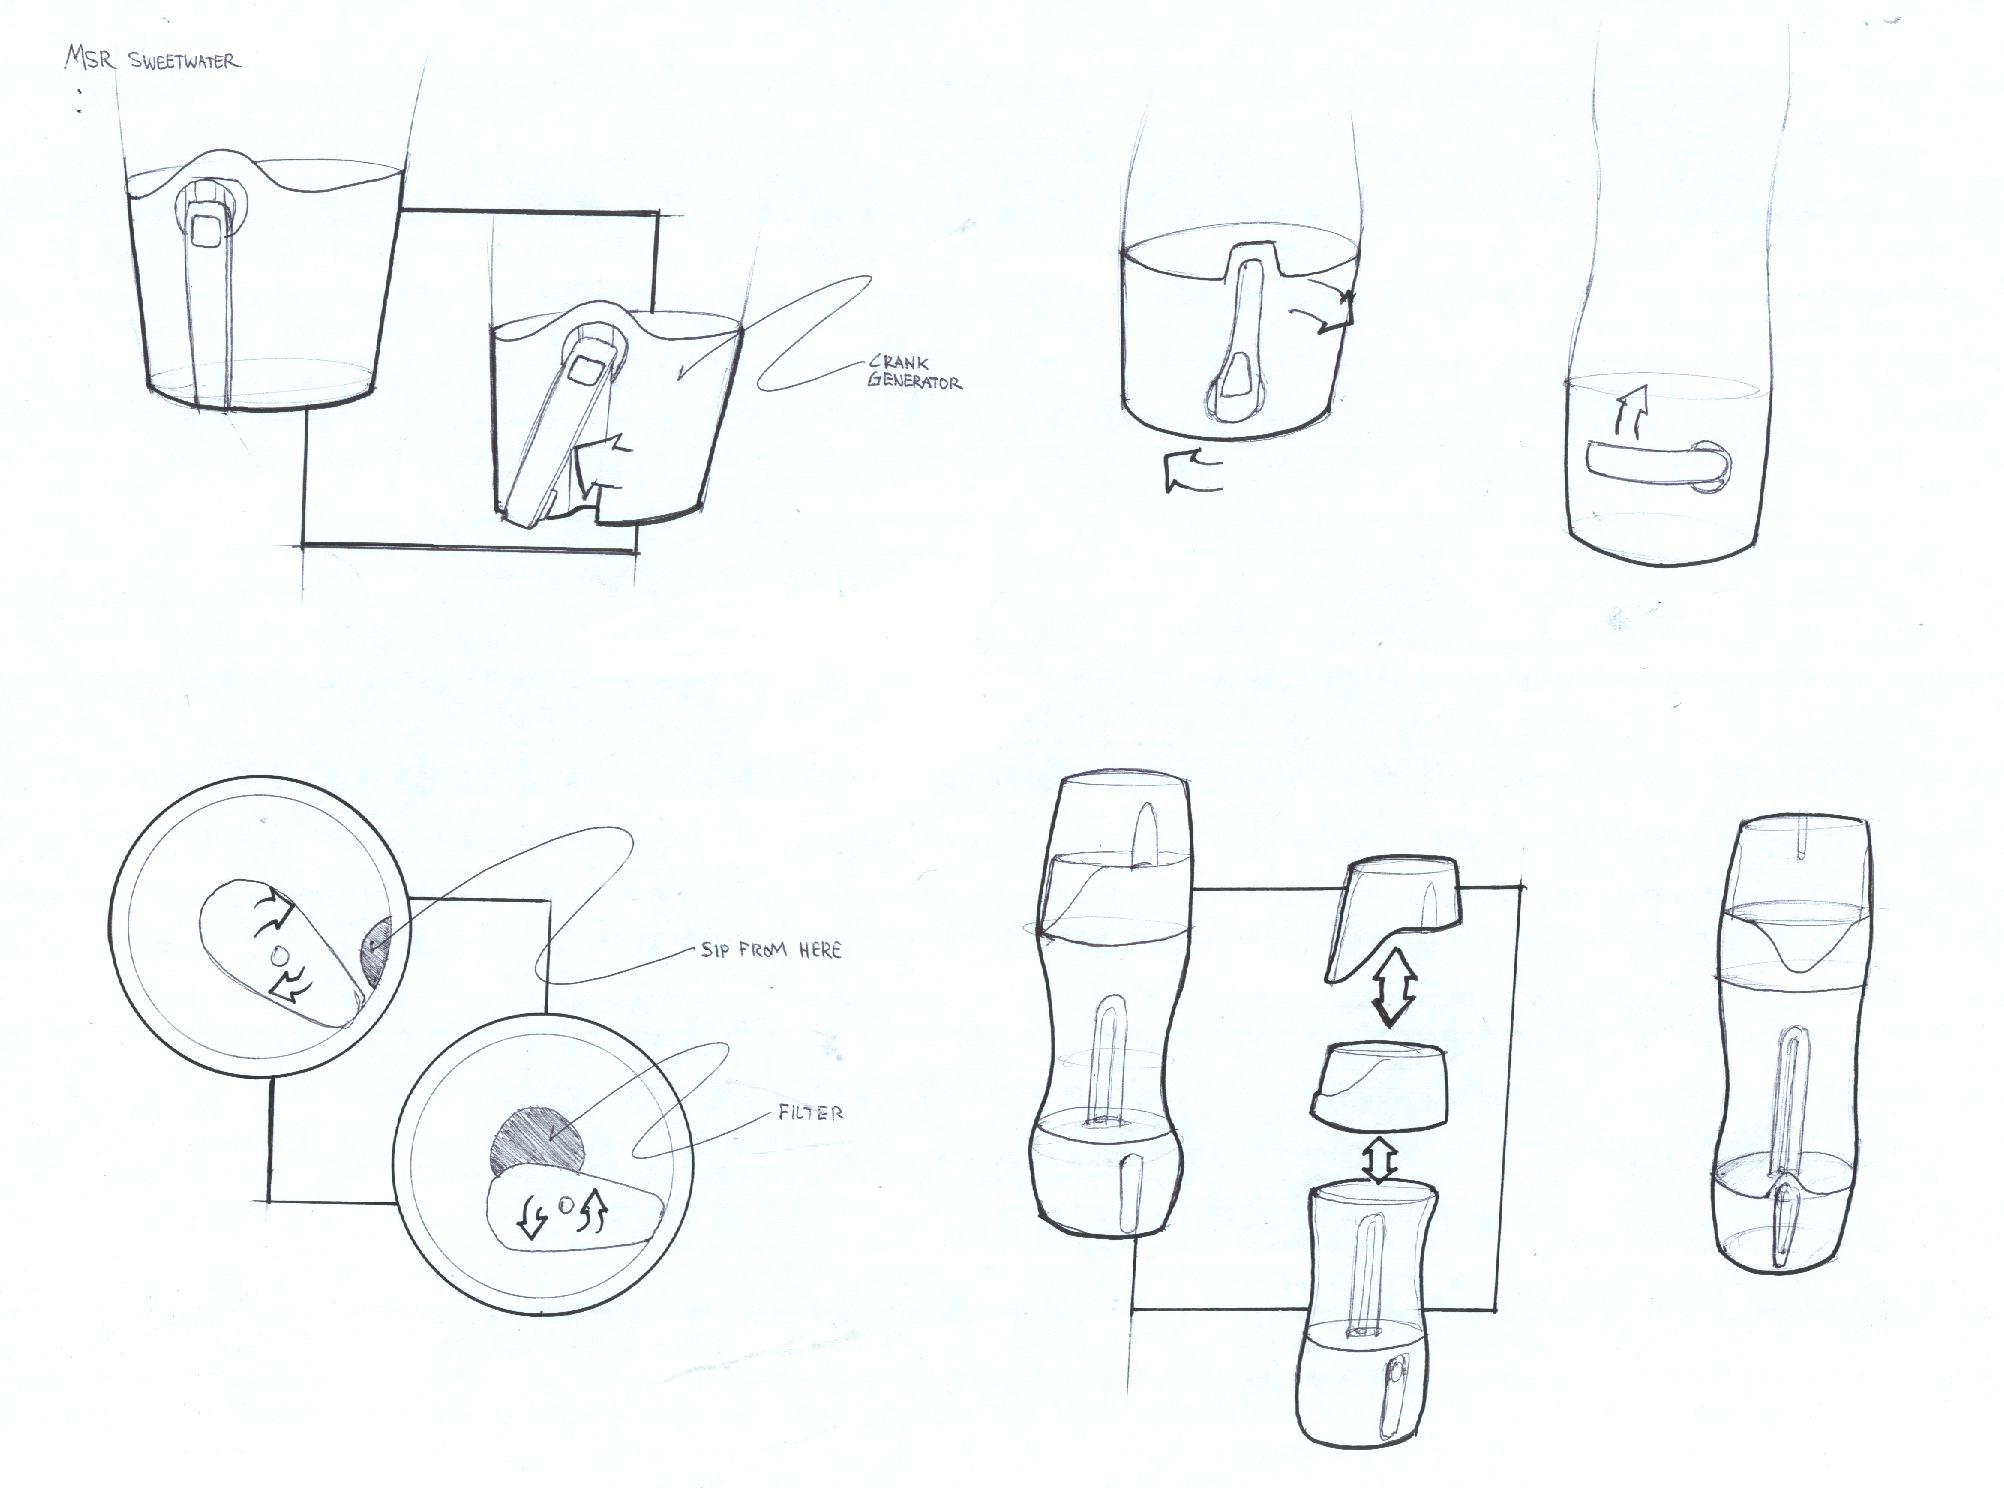 MSR SWEETWATER
CRANK
GENERATOR
SIP FROM HERE
FILTER